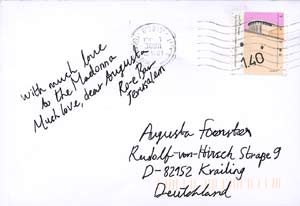 With much love
to the Madonna
Much love, dear Augusta
Jerusalem
140
Augusta
Rudolf-von-Hirsch Straße 9
D-82152 Krailing
Deutschland